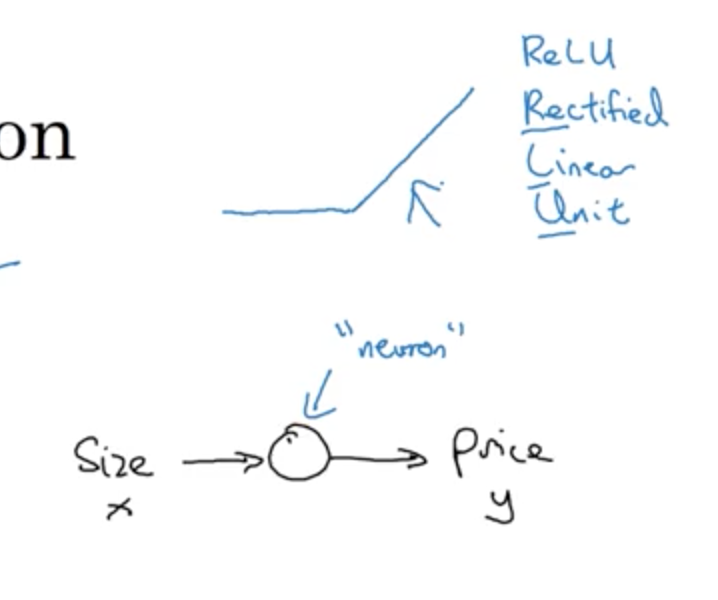 on
ReLU
Rectified
Linear
Unit
"neuron"
Size
x
Price
y